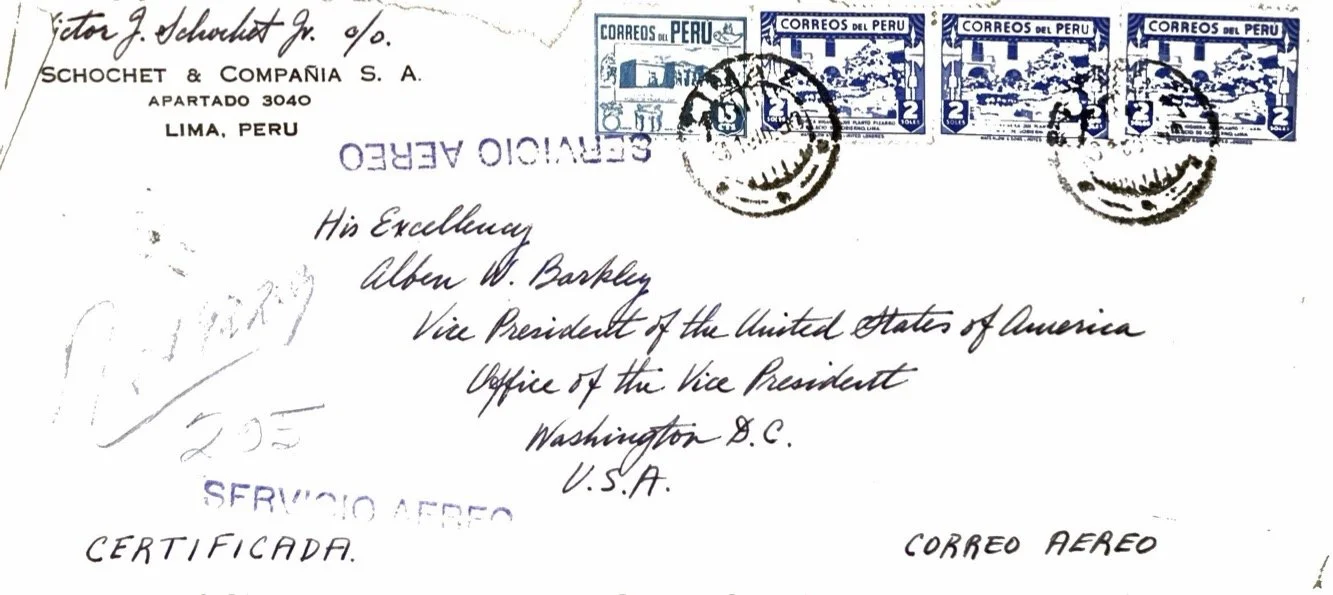 Victor J. Schochet Jr. c/o.
SCHOCHET & COMPAÑIA S. A.
APARTADO 3040
LIMA, PERU
CORREOS DEL PERU
CORREOS DEL PERU
2 SOLES 2 SOLES
CORREOS DEL PERU
2 2 SOLES
CORREOS DEL PERU
2 2 SOLES
SERVICIO AEREO
His Excellency
Alben W. Barkley
Vice President of the United States of America
Office of the Vice President
Washington D.C.
U.S.A.
205
SERVICIO AEREO
CERTIFICADA.
CORREO AEREO